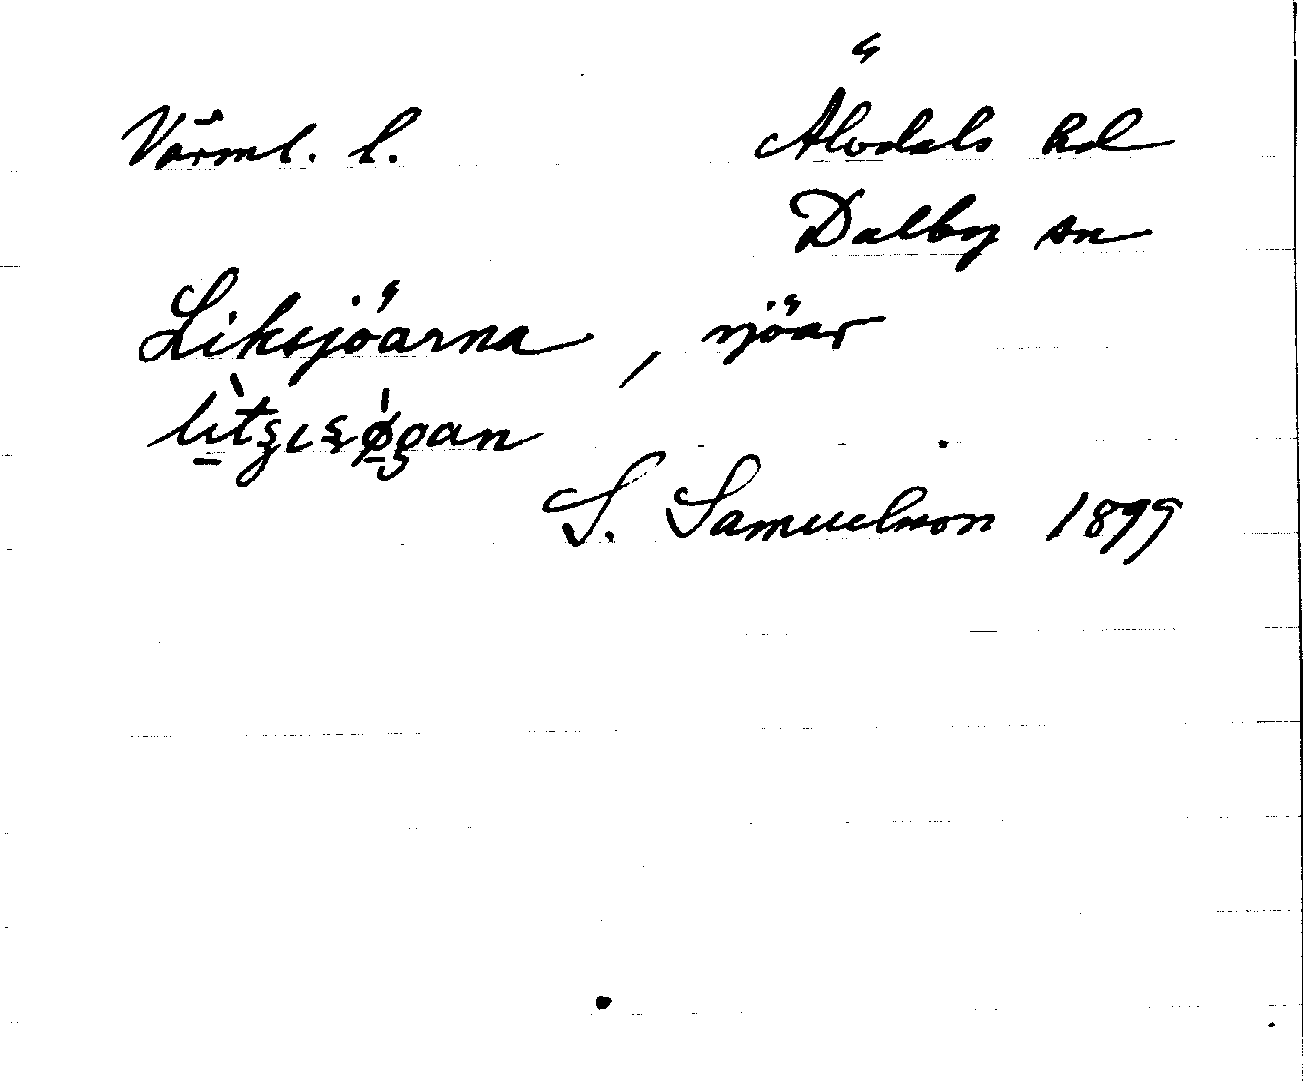 Värml. l. Älvdals hd
Dalby sn
Liksjöarna, sjöar
S. Samuelsson 1899